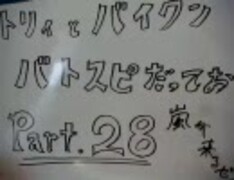 トリィとバイクン
バトスピだってお
Part.28
嵐が来るぜ